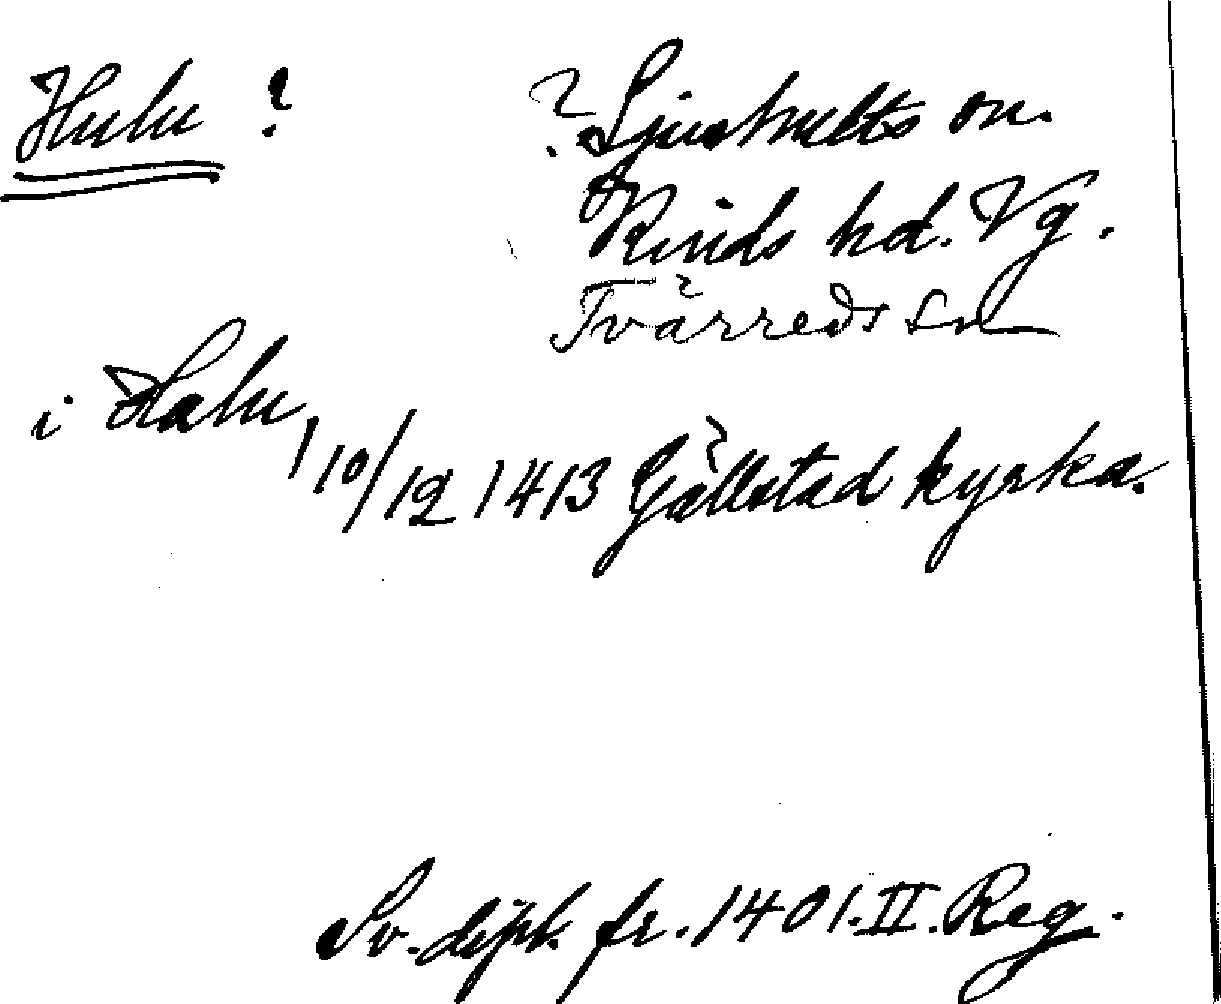 Hulu ?
? Ljushults sn.
Kinds hd. Vg.
Tvärreds sn
i Halu
10/12 1413 Gällstad kyrka.
Sv. dipl. fr. 1401. II. Reg.